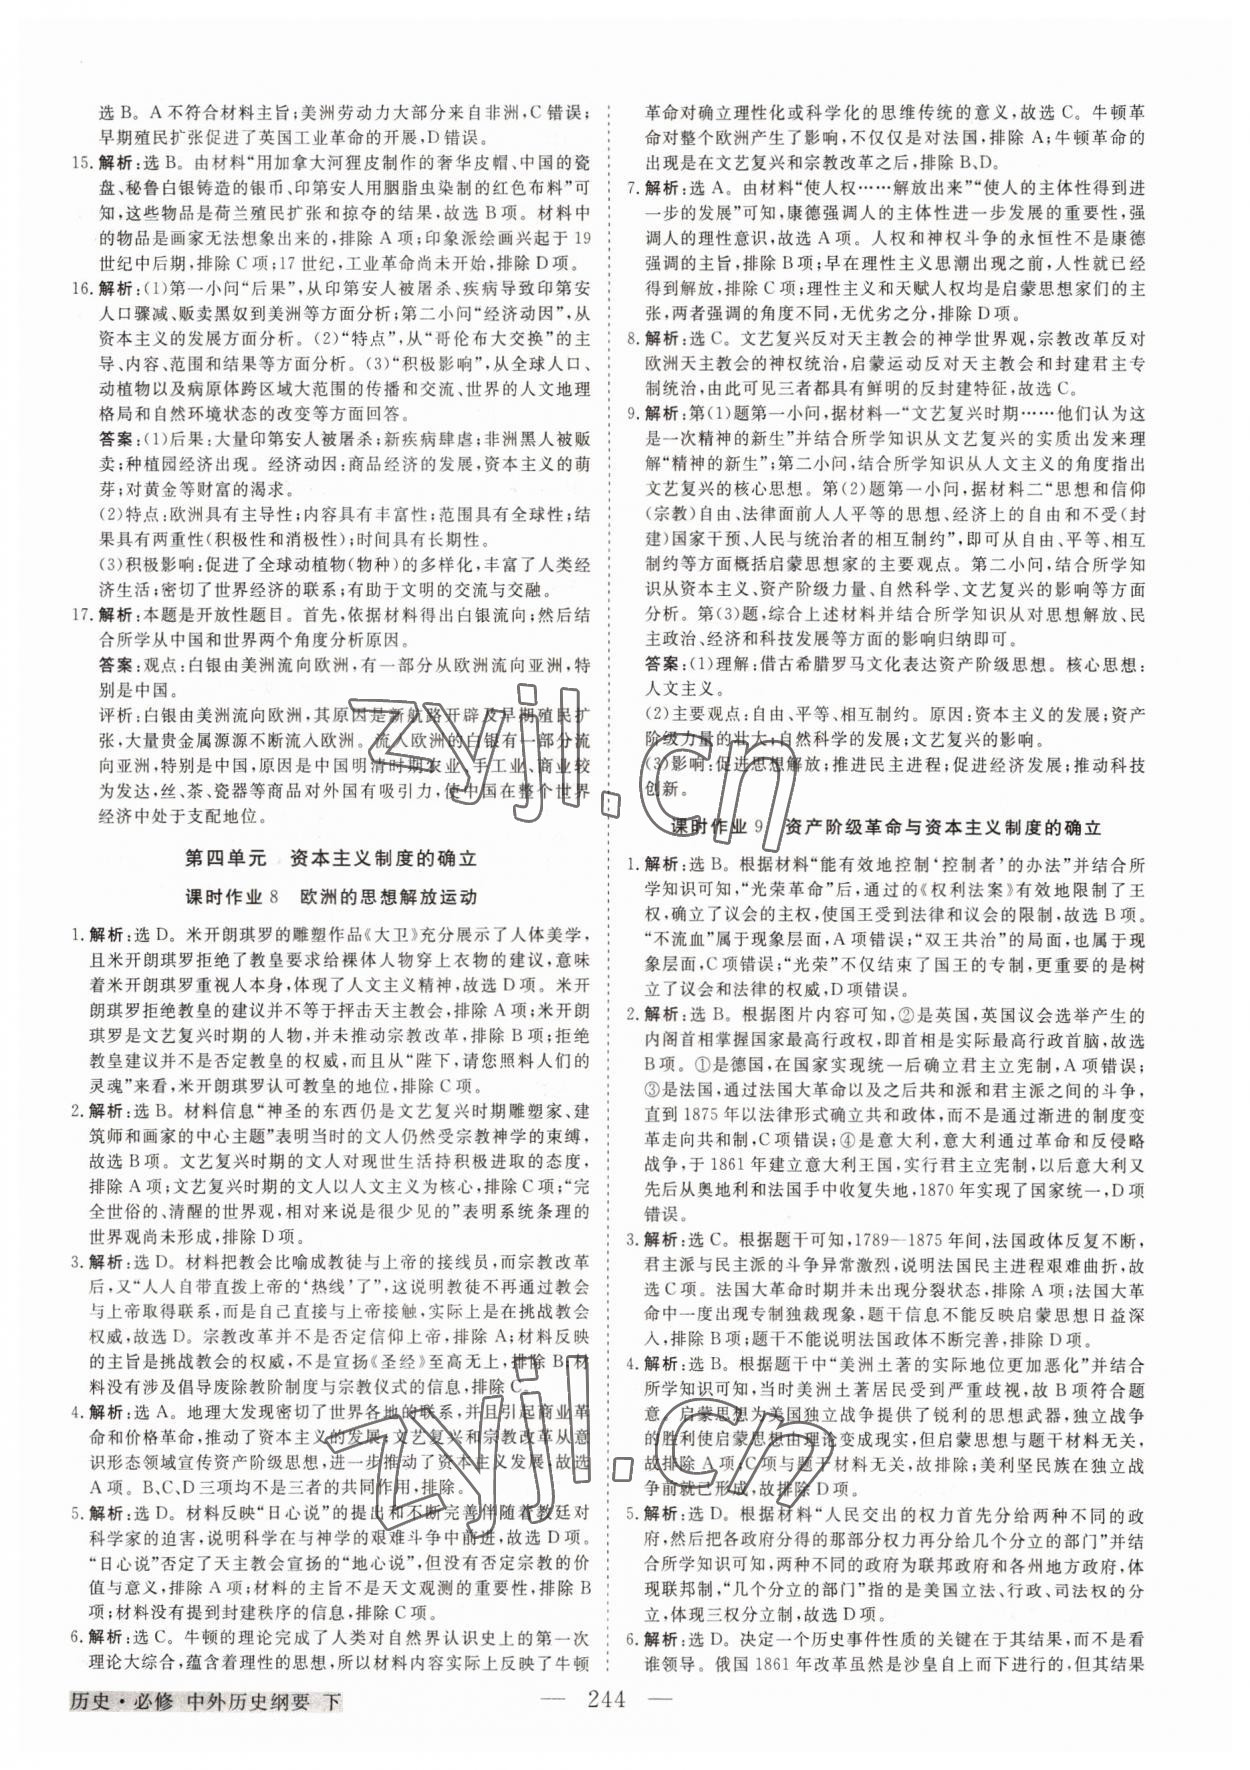 选 B。A 不符合材料主旨;美洲劳动力大部分来自非洲,C 错误;
早期殖民扩张促进了英国工业革命的开展,D 错误。
15. 解析:选 B。由材料“用加拿大河狸皮制作的奢华皮帽、中国的瓷
盘、秘鲁白银铸造的银币、印第安人用胭脂虫染制的红色布料”可
知,这些物品是荷兰殖民扩张和掠夺的结果,故选 B 项。材料中
的物品是画家无法想象出来的,排除 A 项;印象派绘画兴起于 19
世纪中后期,排除 C 项;17 世纪,工业革命尚未开始,排除 D 项。
16. 解析:(1)第一小问“后果”,从印第安人被屠杀、疾病导致印第安
人口骤减、贩卖黑奴到美洲等方面分析;第二小问“经济动因”,从
资本主义的发展方面分析。(2)“特点”,从“哥伦布大交换”的主
导、内容、范围和结果等方面分析。(3)“积极影响”,从全球人口、
动植物以及病原体跨区域大范围的传播和交流、世界的人文地理
格局和自然环境状态的改变等方面回答。
答案:(1)后果:大量印第安人被屠杀;新疾病肆虐;非洲黑人被贩
卖;种植园经济出现。经济动因:商品经济的发展,资本主义的萌
芽;对黄金等财富的渴求。
(2)特点:欧洲具有主导性;内容具有丰富性;范围具有全球性;结
果具有两重性(积极性和消极性);时间具有长期性。
(3)积极影响:促进了全球动植物(物种)的多样化,丰富了人类经
济生活;密切了世界经济的联系;有助于文明的交流与交融。
17. 解析:本题是开放性题目。首先,依据材料得出白银流向;然后结
合所学从中国和世界两个角度分析原因。
答案:观点:白银由美洲流向欧洲,有一部分从欧洲流向亚洲,特
别是中国。
评析:白银由美洲流向欧洲,其原因是新航路开辟及早期殖民扩
张,大量贵金属源源不断流入欧洲。流入欧洲的白银有一部分流
向亚洲,特别是中国,原因是中国明清时期农业、手工业、商业较
为发达,丝、茶、瓷器等商品对外国有吸引力,使中国在整个世界
经济中处于支配地位。
第四单元 资本主义制度的确立
课时作业 8 欧洲的思想解放运动
1. 解析:选 D。米开朗琪罗的雕塑作品《大卫》充分展示了人体美学,
且米开朗琪罗拒绝了教皇要求给裸体人物穿上衣物的建议,意味
着米开朗琪罗重视人本身,体现了人文主义精神,故选 D 项。米开
朗琪罗拒绝教皇的建议并不等于抨击天主教会,排除 A 项;米开朗
琪罗是文艺复兴时期的人物,并未推动宗教改革,排除 B 项;拒绝
教皇建议并不是否定教皇的权威,而且从“陛下,请您照料人们的
灵魂”来看,米开朗琪罗认可教皇的地位,排除 C 项。
2. 解析:选 B。材料信息“神圣的东西仍是文艺复兴时期雕塑家、建
筑师和画家的中心主题”表明当时的文人仍然受宗教神学的束缚,
故选 B 项。文艺复兴时期的文人对现世生活持积极进取的态度,
排除 A 项;文艺复兴时期的文人以人文主义为核心,排除 C 项;“完
全世俗的、清醒的世界观,相对来说是很少见的”表明系统条理的
世界观尚未形成,排除 D 项。
3. 解析:选 D。材料把教会比喻成教徒与上帝的接线员,而宗教改革
后,又“人人自带直拨上帝的‘热线’了”,这说明教徒不再通过教会
与上帝取得联系,而是自己直接与上帝接触,实际上是在挑战教会
权威,故选 D。宗教改革并不是否定信仰上帝,排除 A;材料反映
的主旨是挑战教会的权威,不是宣扬《圣经》至高无上,排除 B;材
料没有涉及倡导废除教阶制度与宗教仪式的信息,排除 C。
4. 解析:选 A。地理大发现密切了世界各地的联系,并且引起商业革
命和价格革命,推动了资本主义的发展;文艺复兴和宗教改革从意
识形态领域宣传资产阶级思想,进一步推动了资本主义发展,故选
A 项。B、C、D 三项均不是三者的共同作用,排除。
5. 解析:选 D。材料反映“日心说”的提出和不断完善伴随着教廷对
科学家的迫害,说明科学在与神学的艰难斗争中前进,故选 D 项。
“日心说”否定了天主教会宣扬的“地心说”,但没有否定宗教的价
值与意义,排除 A 项;材料的主旨不是天文观测的重要性,排除 B
项;材料没有提到封建秩序的信息,排除 C 项。
6. 解析:选 C。牛顿的理论完成了人类对自然界认识史上的第一次
理论大综合,蕴含着理性的思想,所以材料内容实际上反映了牛顿
革命对确立理性化或科学化的思维传统的意义,故选 C。牛顿革
命对整个欧洲产生了影响,不仅仅是对法国,排除 A;牛顿革命的
出现是在文艺复兴和宗教改革之后,排除 B、D。
7. 解析:选 A。由材料“使人权……解放出来”“使人的主体性得到进
一步的发展”可知,康德强调人的主体性进一步发展的重要性,强
调人的理性意识,故选 A 项。人权和神权斗争的永恒性不是康德
强调的主旨,排除 B 项;早在理性主义思潮出现之前,人性就已经
得到解放,排除 C 项;理性主义和天赋人权均是启蒙思想家们的主
张,两者强调的角度不同,无优劣之分,排除 D 项。
8. 解析:选 C。文艺复兴反对天主教会的神学世界观,宗教改革反对
欧洲天主教会的神权统治,启蒙运动反对天主教会和封建君主专
制统治,由此可见三者都具有鲜明的反封建特征,故选 C。
9. 解析:第(1)题第一小问,据材料一“文艺复兴时期……他们认为这
是一次精神的新生”并结合所学知识从文艺复兴的实质出发来理
解“精神的新生”;第二小问,结合所学知识从人文主义的角度指出
文艺复兴的核心思想。第(2)题第一小问,据材料二“思想和信仰
(宗教)自由、法律面前人人平等的思想、经济上的自由和不受(封
建)国家干预、人民与统治者的相互制约”,即可从自由、平等、相互
制约等方面概括启蒙思想家的主要观点。第二小问,结合所学知
识从资本主义、资产阶级力量、自然科学、文艺复兴的影响等方面
分析。第(3)题,综合上述材料并结合所学知识从对思想解放、民
主政治、经济和科技发展等方面的影响归纳即可。
答案:(1)理解:借古希腊罗马文化表达资产阶级思想。核心思想:
人文主义。
(2)主要观点:自由、平等、相互制约。原因:资本主义的发展;资产
阶级力量的壮大;自然科学的发展;文艺复兴的影响。
(3)影响:促进思想解放;推进民主进程;促进经济发展;推动科技
创新。
课时作业 9 资产阶级革命与资本主义制度的确立
1. 解析:选 B。根据材料“能有效地控制‘控制者’的办法”并结合所
学知识可知,“光荣革命”后,通过的《权利法案》有效地限制了王
权,确立了议会的主权,使国王受到法律和议会的限制,故选 B 项。
“不流血”属于现象层面,A 项错误;“双王共治”的局面,也属于现
象层面,C 项错误;“光荣”不仅结束了国王的专制,更重要的是树
立了议会和法律的权威,D 项错误。
2. 解析:选 B。根据图片内容可知,②是英国,英国议会选举产生的
内阁首相掌握国家最高行政权,即首相是实际最高行政首脑,故选
B 项。①是德国,在国家实现统一后确立君主立宪制,A 项错误;
③是法国,通过法国大革命以及之后共和派和君主派之间的斗争,
直到 1875 年以法律形式确立共和政体,而不是通过渐进的制度变
革走向共和制,C 项错误;④是意大利,意大利通过革命和反侵略
战争,于 1861 年建立意大利王国,实行君主立宪制,以后意大利又
先后从奥地利和法国手中收复失地,1870 年实现了国家统一,D 项
错误。
3. 解析:选 C。根据题干可知,1789—1875 年间,法国政体反复不断,
君主派与民主派的斗争异常激烈,说明法国民主进程艰难曲折,故
选 C 项。法国大革命时期并未出现分裂状态,排除 A 项;法国大革
命中一度出现专制独裁现象,题干信息不能反映启蒙思想日益深
入,排除 B 项;题干不能说明法国政体不断完善,排除 D 项。
4. 解析:选 B。根据题干中“美洲土著的实际地位更加恶化”并结合
所学知识可知,当时美洲土著居民受到严重歧视,故 B 项符合题
意。启蒙思想为美国独立战争提供了锐利的思想武器,独立战争
的胜利使启蒙思想由理论变成现实,但启蒙思想与题干材料无关,
故排除 A 项;C 项与题干材料无关,故排除;美利坚民族在独立战
争前就已形成,故排除 D 项。
5. 解析:选 D。根据材料“人民交出的权力首先分给两种不同的政
府,然后把各政府分得的那部分权力再分给几个分立的部门”并结
合所学知识可知,两种不同的政府为联邦政府和各州地方政府,体
现联邦制,“几个分立的部门”指的是美国立法、行政、司法权的分
立,体现三权分立制,故选 D 项。
6. 解析:选 D。决定一个历史事件性质的关键在于其结果,而不是看
谁领导。俄国 1861 年改革虽然是沙皇自上而下进行的,但其结果
历史·必修 中外历史纲要 下
— 244 —
zyjl.cn
zyjl.cn